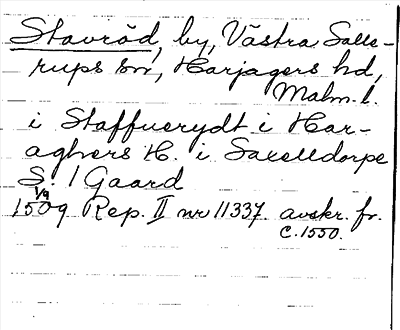 Stavröd, by, Västra Salle-
rups sn, Harjagers hd,
Malm. l.
i Staffuerydt i Har-
aghers H. i Saxelldorpe
S. 1 Gaard
1/9
1509 Rep. II nr 11337 avskr. fr.
c. 1550.